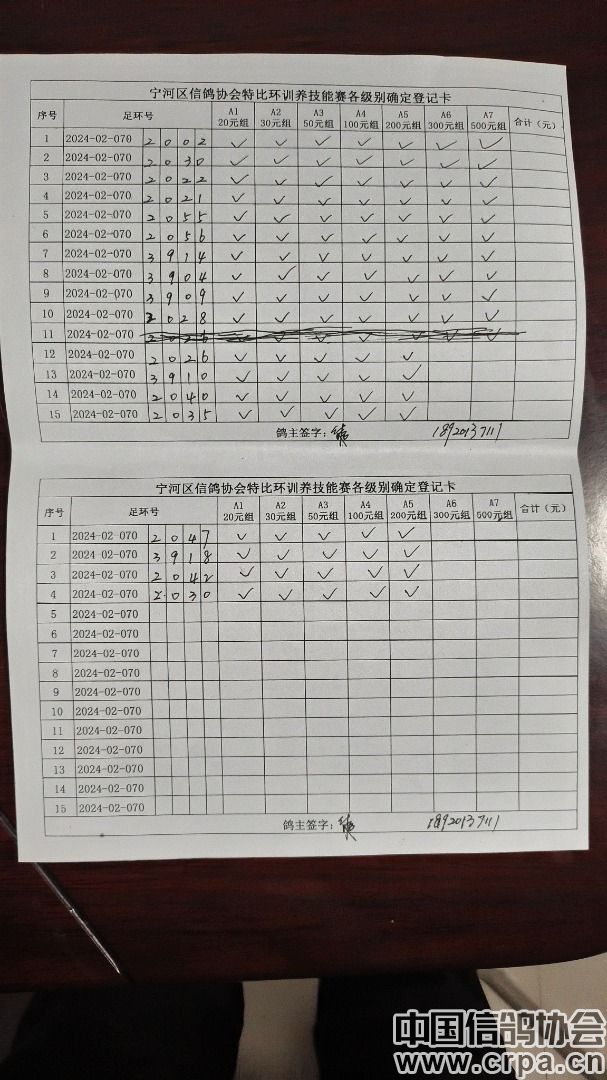 宁河区信鸽协会特比环训养技能赛各级别确定登记卡
序号 足环号 A1 20元组 A2 30元组 A3 50元组 A4 100元组 A5 200元组 A6 300元组 A7 500元组 合计（元）
1 2024-02-070 2002 ✓ ✓ ✓ ✓ ✓ ✓ ✓
2 2024-02-070 2030 ✓ ✓ ✓ ✓ ✓ ✓ ✓
3 2024-02-070 2022 ✓ ✓ ✓ ✓ ✓ ✓ ✓
4 2024-02-070 2021 ✓ ✓ ✓ ✓ ✓ ✓ ✓
5 2024-02-070 2055 ✓ ✓ ✓ ✓ ✓ ✓ ✓
6 2024-02-070 2056 ✓ ✓ ✓ ✓ ✓ ✓ ✓
7 2024-02-070 3914 ✓ ✓ ✓ ✓ ✓ ✓ ✓
8 2024-02-070 3904 ✓ ✓ ✓ ✓ ✓ ✓ ✓
9 2024-02-070 3909 ✓ ✓ ✓ ✓ ✓ ✓ ✓
10 2024-02-070 2028 ✓ ✓ ✓ ✓ ✓ ✓ ✓
11 2024-02-070
12 2024-02-070 2026 ✓ ✓ ✓ ✓ ✓
13 2024-02-070 3910 ✓ ✓ ✓ ✓ ✓
14 2024-02-070 2040 ✓ ✓ ✓ ✓ ✓
15 2024-02-070 2035 ✓ ✓ ✓ ✓ ✓
鸽主签字： 18920137111
宁河区信鸽协会特比环训养技能赛各级别确定登记卡
序号 足环号 A1 20元组 A2 30元组 A3 50元组 A4 100元组 A5 200元组 A6 300元组 A7 500元组 合计（元）
1 2024-02-070 2047 ✓ ✓ ✓ ✓ ✓
2 2024-02-070 3918 ✓ ✓ ✓ ✓ ✓
3 2024-02-070 2042 ✓ ✓ ✓ ✓ ✓
4 2024-02-070 2030 ✓ ✓ ✓ ✓ ✓
5 2024-02-070
6 2024-02-070
7 2024-02-070
8 2024-02-070
9 2024-02-070
10 2024-02-070
11 2024-02-070
12 2024-02-070
13 2024-02-070
14 2024-02-070
15 2024-02-070
鸽主签字： 18920137111
中国信鸽协会
www.crpa.cn